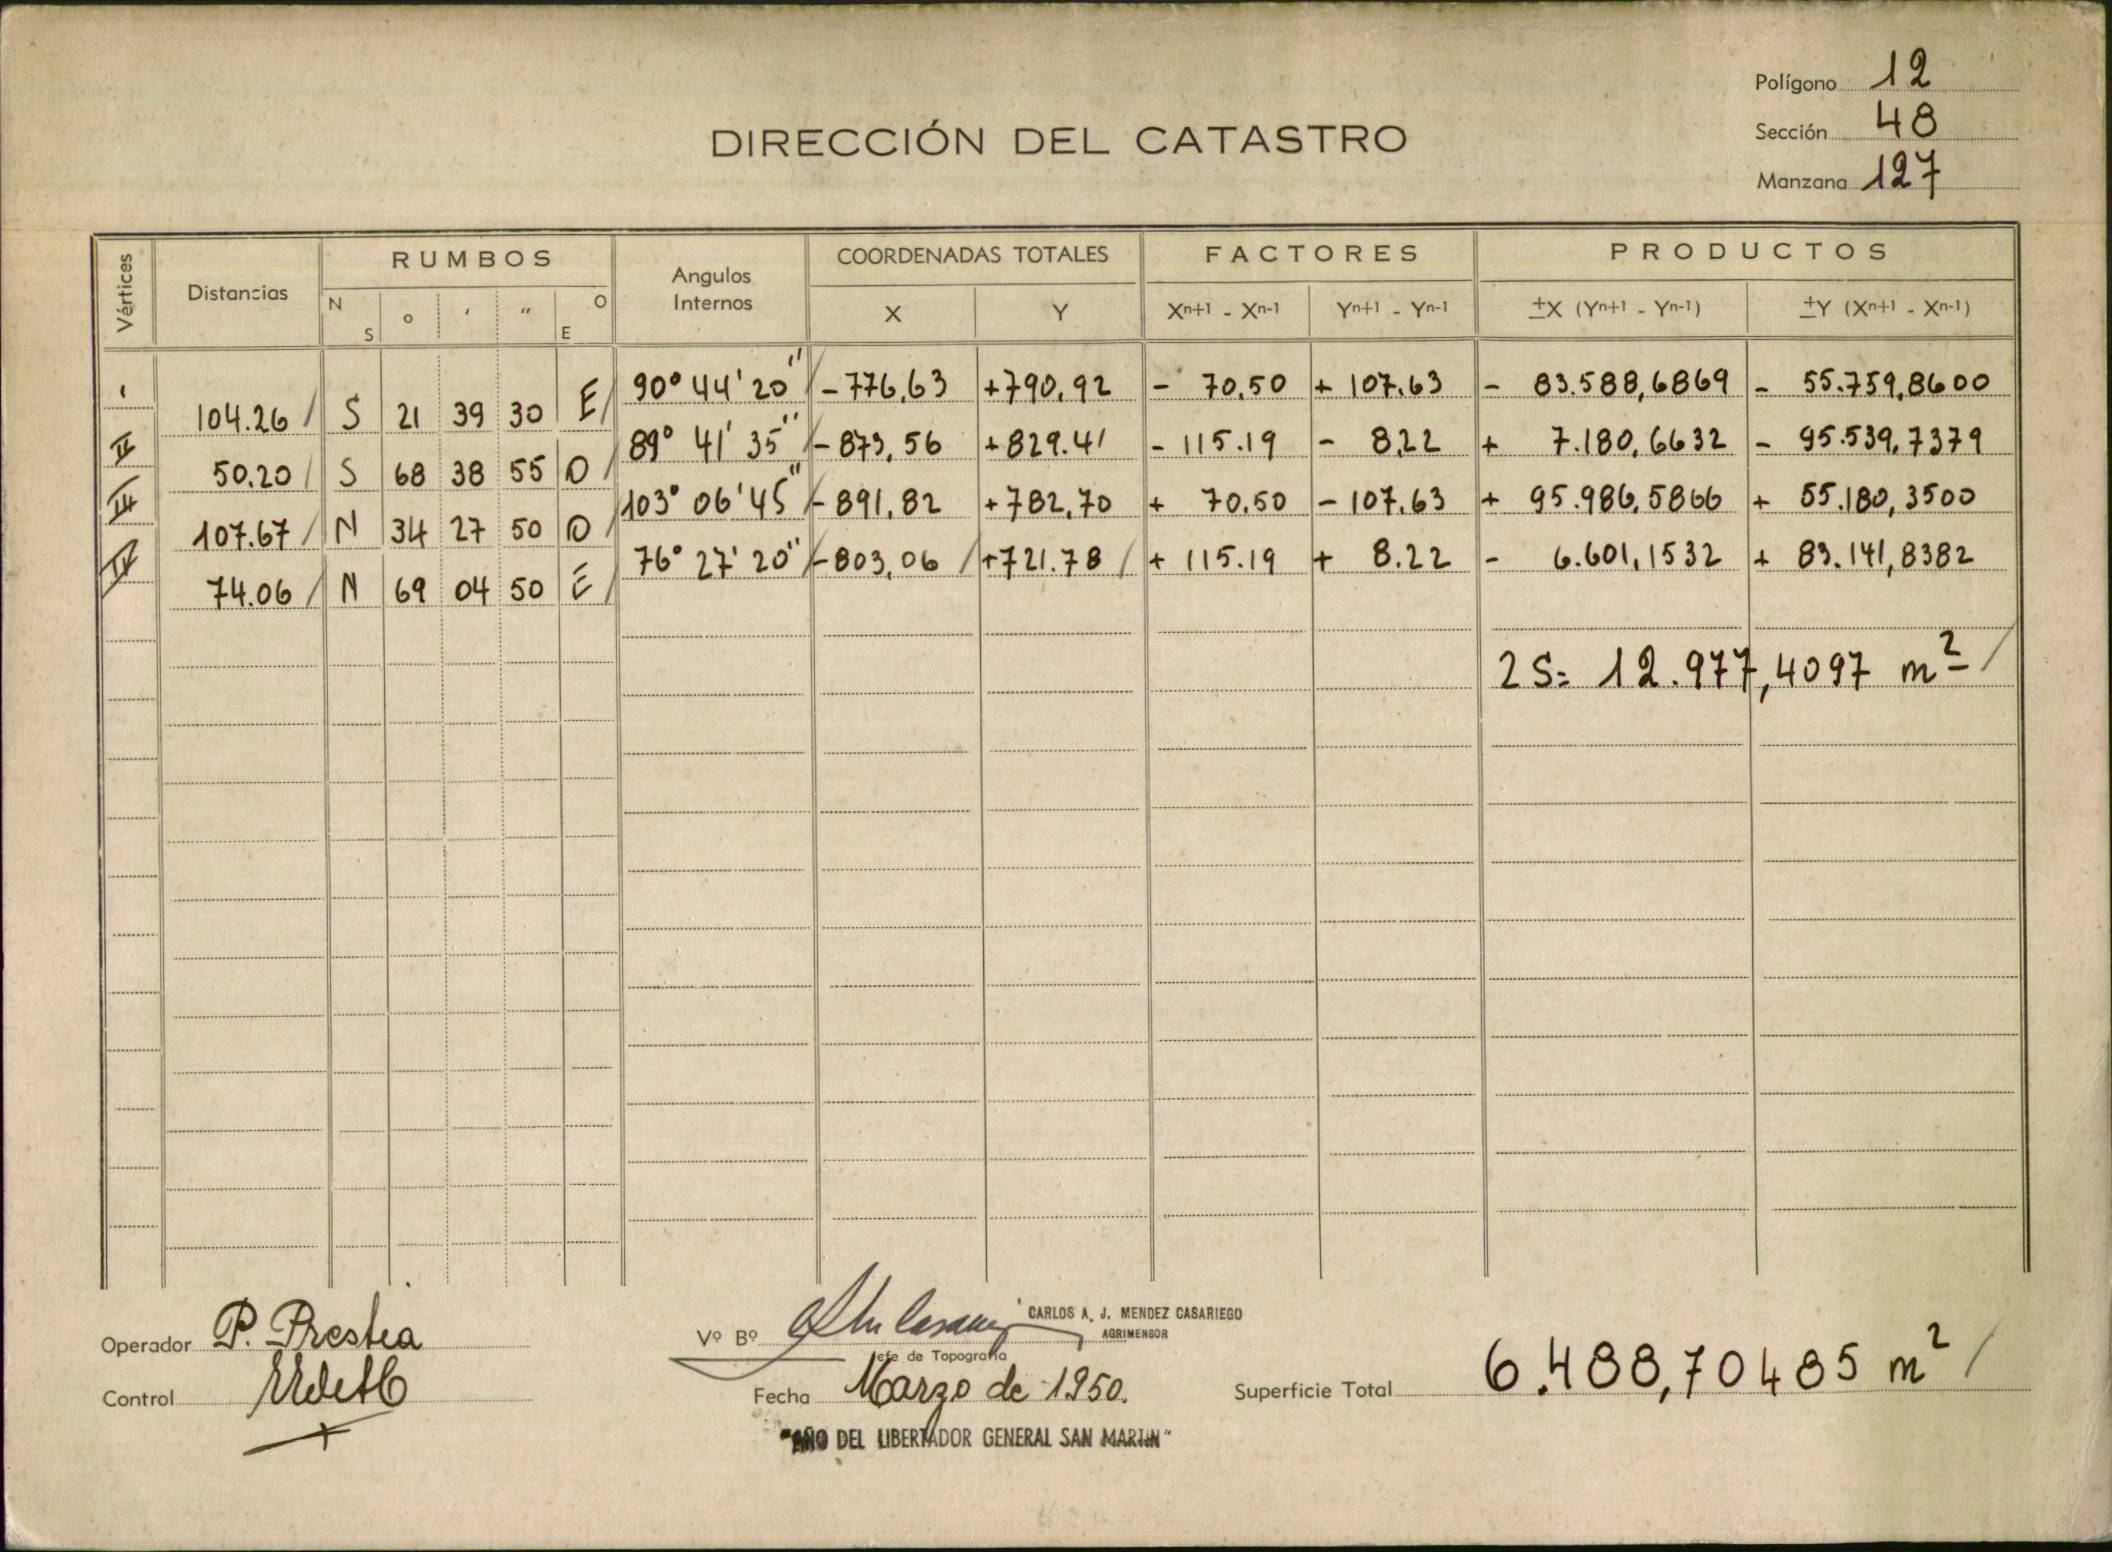 Polígono 12
DIRECCIÓN DEL CATASTRO
Sección 48
Manzana 127
Vértices Distancias RUMBOS Angulos Internos COORDENADAS TOTALES FACTORES PRODUCTOS
N S o ' " O E X Y Xn+1 - Xn-1 Yn+1 - Yn-1 ±X (Yn+1 - Yn-1) ±Y (Xn+1 - Xn-1)
I 90° 44' 20" -776,63 +790,92 - 70,50 + 107,63 - 83.588,6869 - 55.759,8600
104.26 S 21 39 30 E
II 89° 41' 35" -873,56 +829.41 - 115.19 - 8,22 + 7.180,6632 - 95.539,7379
50.20 S 68 38 55 O
III 103° 06' 45" -891,82 +782,70 + 70,50 - 107,63 + 95.986,5866 + 55.180,3500
107.67 N 34 27 50 O
IV 76° 27' 20" -803,06 +721.78 + 115.19 + 8.22 - 6.601,1532 + 83.141,8382
74.06 N 69 04 50 E
2 S= 12.977,4097 m2
Operador P. Prestia
Vº Bº CARLOS A. J. MENDEZ CASARIEGO
AGRIMENSOR
Jefe de Topografía
Control
Fecha Marzo de 1950.
Superficie Total 6.488,70485 m2
"AÑO DEL LIBERTADOR GENERAL SAN MARTIN"